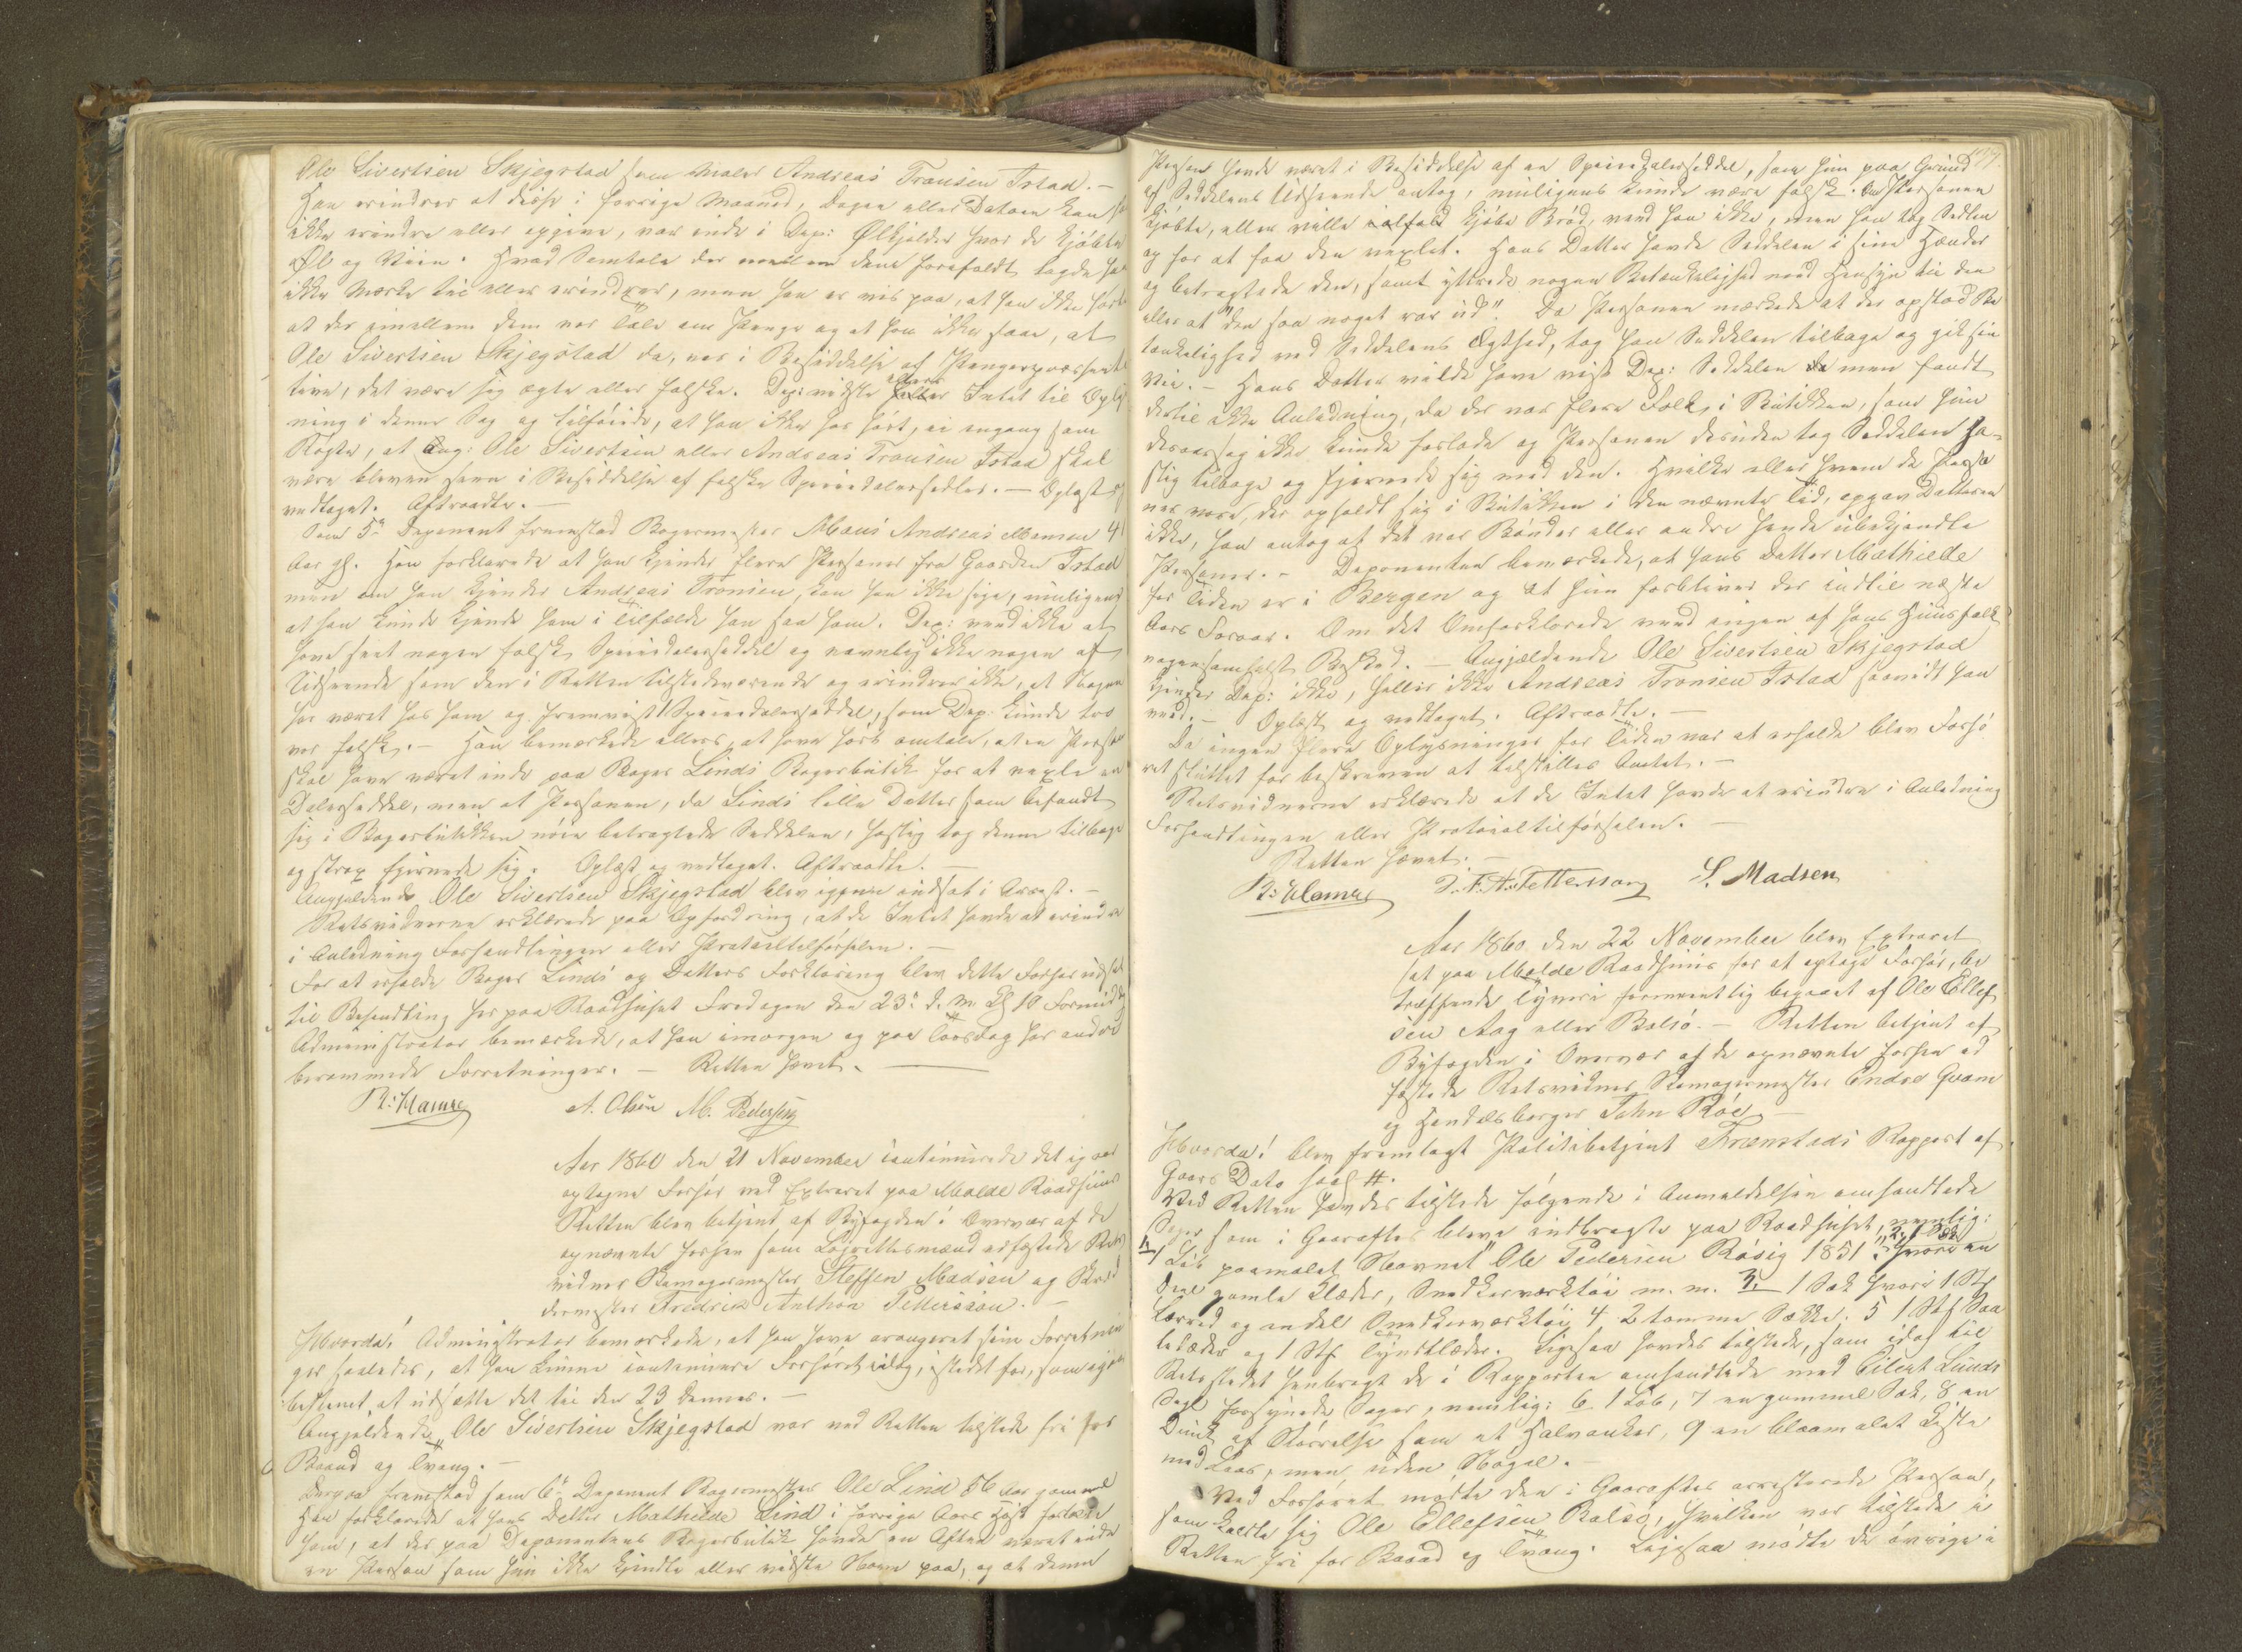 Ole Sivertsen Skjegstad som Maler Andreas Tronsen Istad. –
Han erindrer at disse i forrige Maaned, Dagen eller Datoen kan
ikke erindre eller opgive, var inde i Dep: Ølkjelder hvor de kjøbte
Øl og Viin. Hvad Samtale der mellem dem forefaldt lagde han
ikke Mærke til eller erindrer, men han er vis paa, at han ikke hørte
at der imellem dem var Tale om Penge og at han ikke saae, at
Ole Sivertsen Skjegstad da, var i Besiddelse af Pengerepræsenta
tiver, det være sig ægte eller falske. Dep: vidste ellers Intet til Oplys
ning i denne Sag og tilføiede, at han ikke har hørt, ei engang som
Rygte, at Ang: Ole Sivertsen eller Andreas Tronsen Istad skal
være bleven seen i Besiddelse af falske Speciedalersedler. – Oplæst og
vedtaget. Aftraadte. –
Som 5te Deponent fremstod Bagermester Maus Andreas Monsen 41
Aar gl. Han forklarede at han kjender flere Personer fra Gaarden Istad
men om han kjender Andreas Tronsen, kan han ikke sige, muligens
at han kunde kjende ham i Tilfælde han saa ham. Dep: veed ikke at
have seet nogen falsk Speciedalerseddel og navnlig ikke nogen af
Udseende som den i Retten tilstedeværende og erindrer ikke, at Nogen
har været hos ham og fremviist 1 Speciedalerseddel, som Dep. kunde tro
var falsk. – Han bemærkede ellers, at have hørt omtale, at en Person
skal have været inde paa Bager Linds Bagerbutik for at vexle en
Dalerseddel, men at Personen, da Linds lille Datter som befandt
sig i Bagerbutikken nøie betragtede Seddelen, hastig tog denne tilbage
og strax fjernede sig. Oplæst og vedtaget. Aftraadte. –
Angjældende Ole Sivertsen Skjegstad blev igjen indsat i Arrest. –
Retsvidnerne erklærede paa Opfordring, at de Intet havde at erindre
i Anledning Forhandlingen eller Protocoltilførselen. –
For at erholde Bager Linds og Datters Forklaring blev dette Forhør udsat
til Behandling her paa Raadhuset Fredagen den 23de d. M. Kl 10 Formiddag
Administrator bemærkede, at han imorgen og paa Torsdag har andre
berammede Forretninger. – Retten hævet. –
R: Hamre A. Olsen M. Pedersen
Aar 1860 den 21 November continuerede det igaar
optagne Forhør ved Extraret paa Molde Raadhuus
Retten blev betjent af Byfogden i Overvær af de
opnævnte Forhen som Lagrettesmænd edfæstede Rets
vidner Skomagermester Steffen Madsen og Skræd
dermester Fredrik Anthon Pettersson. –
Hvorda! Administrator bemærkede, at han have arrangeret sine Forretnin
ger saaledes, at han kunne continuere Forhøret idag, istedet for, som igaar
bestemt, at udsætte det til den 23 dennes. –
Angjældende, Ole Sivertsen Skjegstad var ved Retten tilstede fri for
Baand og Tvang. –
Derpaa fremstod som 6te Deponent Bagermester Ole Lind 56 Aar gammel
Han forklarede at hans Datter Mathilde Lind i forrige Aars Høst fortalte
ham, at der paa Deponentens Bagerbutik havde en Aften været inde
en Person som hun ikke kjendte eller vidste Navn paa, og at denne
Person havde været i Besiddelse af en Speciedalerseddel, som hun paa Grund
af Seddelens Udseende antog, muligens kunde være falsk. Om Personen
kjøbte, eller vilde ialfald kjøbe Brød, veed han ikke, men han tog Sedlen
op for at faa den vexlet. Hans Datter havde Seddelen i sine Hænder
og betragtede den, samt yttrede nogen Betænkelighed med Hensyn til den
eller at "den saa noget rar ud". Da Personen mærkede at der opstod Be
tænkelighed ved Seddelens Ægthed, tog han Seddelen tilbage og gik sin
Vei. – Hans Datter vilde have vist Dep: Seddelen men fandt
dertil ikke Anledning, da der var flere Folk i Butikken, som hun
desaarsag ikke kunde forlade og Personen desuden tog Seddelen ha-
stig tilbage og fjernede sig med den. Hvilke eller hvem de Perso
ner vare, der opholdt sig i Butikken i den nævnte Tid, opgav Datteren
ikke, han antog at det var Bønder eller andre hende ubekjendte
Personer. – Deponenten bemærkede, at hans Datter Mathilde
for Tiden er i Bergen og at hun forbliver der indtil næste
Aars Foraar. Om det Omforklarede veed ingen af hans Huusfolk
nogensomhelst Besked. – Angjældende Ole Sivertsen Skjegstad
kjender Dep: ikke, heller ikke Andreas Tronsen Istad saavidt han
veed. – Oplæst og vedtaget. Aftraadte. –
Da ingen flere Oplysninger for Tiden var at erholde blev Forhø
ret sluttet for beskreven at tilstilles Amtet. –
Retsvidnerne erklærede at de Intet havde at erindre i Anledning
Forhandlingen eller Protocoltilførselen. –
Retten hævet. –
R: Hamre F. A. Pettersson S. Madsen
Aar 1860 den 22 November blev Extraret
sat paa Molde Raadhuus for at optage Forhør, be
træffende Tyveri formeentlig begaaet af Ole Ellef
sen Aag eller Bolsø. – Retten betjent af
Byfogden i Overvær af de opnævnte forhen ed
fæstede Retsvidner Skomagermester Endre Gvam
og Handelsborger John Röe. –
Hvorda! blev fremlagt Politibetjent Frænstads Rapport af
Gaars Dato saal #.
Ved Retten havdes tilstede følgende i Anmeldelsen omhandlede
Sager som i Gaaraftes bleve indbragte paa Raadhuset, nemlig:
1. 1 Løb paamalet Navnet "Ole Pedersen Røsig 1851" 2. 1 Sæk hvori en
Deel gamle Klæder, Snedkerværktøi m. m. 3. 1 Sæk hvori 1 Stk
Lærred og endel Snedkerværktøi, 4. 2 tomme Sække. 5 1 Stk Saa
lelæder og 1 Stk Tyndtlæder. Ligesaa havdes tilstede, som idag til
Retsstedet henbragt de i Rapporten omhandlede med Eilert Lunds
Segl forsynede Sager, nemlig: 6. 1 Løb, 7 en gammel Sæk, 8 en
Dunk af Størrelse som et Halvanker, 9 en blaamalet Kiste
med Laas, men uden Nøgel. –
Ved Forhøret mødte den i Gaaraftes arresterede Person,
som kaldte sig Ole Ellefsen Bolsø, hvilken var tilstede i
Retten fri for Baand og Tvang. Ligesaa mødte de øvrige i